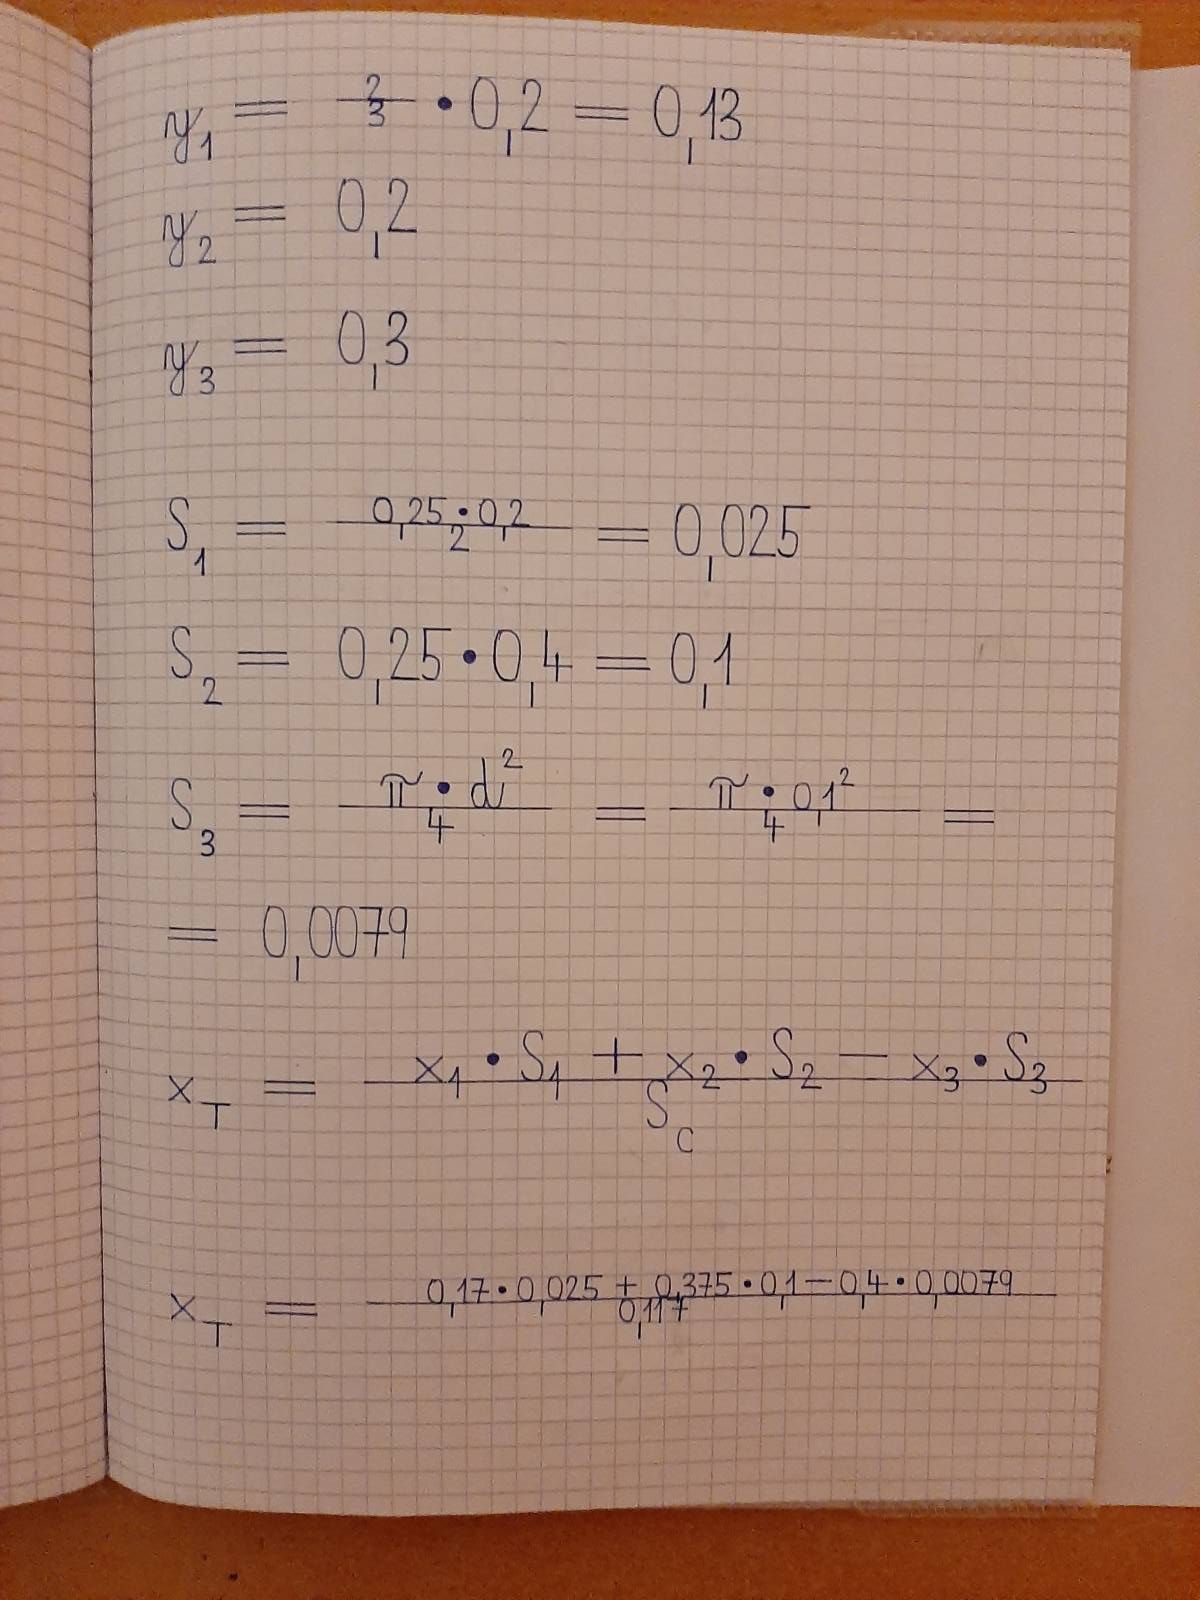 y₁ = 2/3 • 0,2 = 0,13
y₂ = 0,2
y₃ = 0,3
S₁ = 0,25 • 0,2 / 2 = 0,025
S₂ = 0,25 • 0,4 = 0,1
S₃ = π • d² / 4 = π • 0,1² / 4 =
= 0,0079
x_T = x₁ • S₁ + x₂ • S₂ − x₃ • S₃ / S_c
x_T = 0,17 • 0,025 + 0,375 • 0,1 − 0,4 • 0,0079 / 0,117